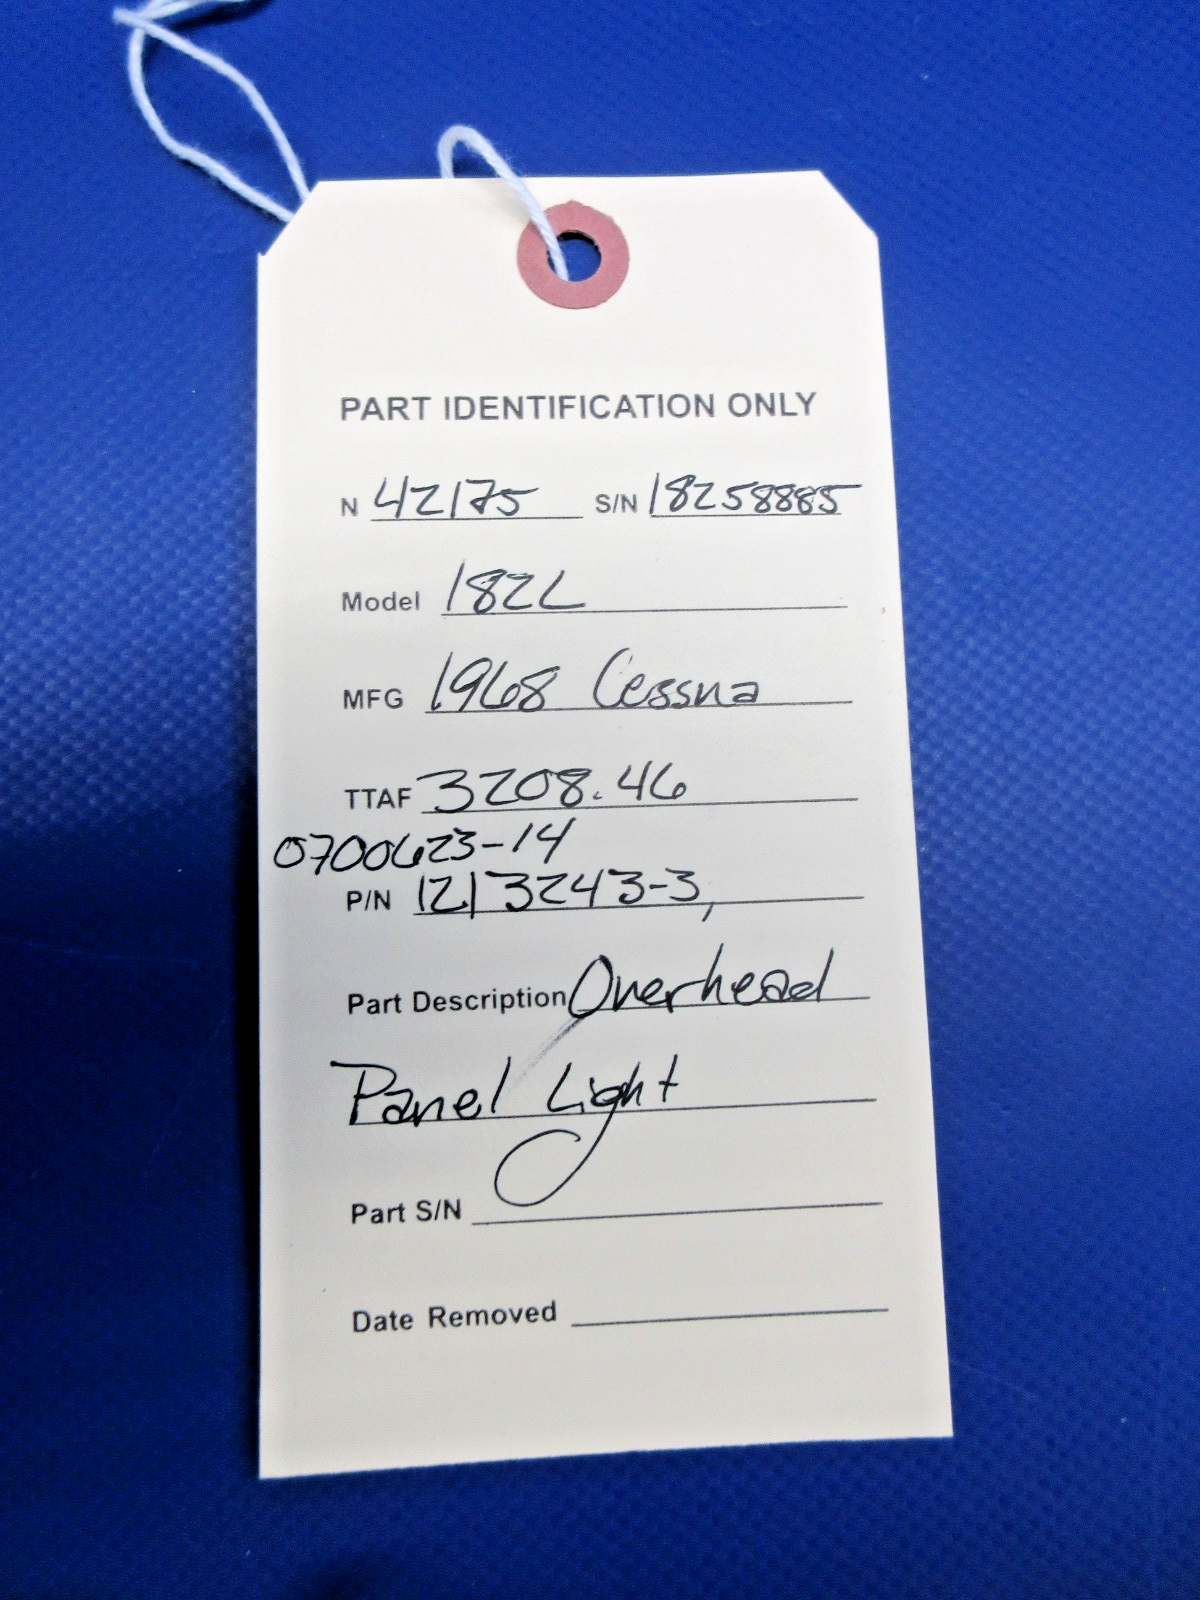 PART IDENTIFICATION ONLY
N 42175 S/N 18258885
Model 182L
MFG 1968 Cessna
TTAF 3208.46
0700623-14
P/N 1213243-3,
Part Description Overhead
Panel Light
Part S/N
Date Removed